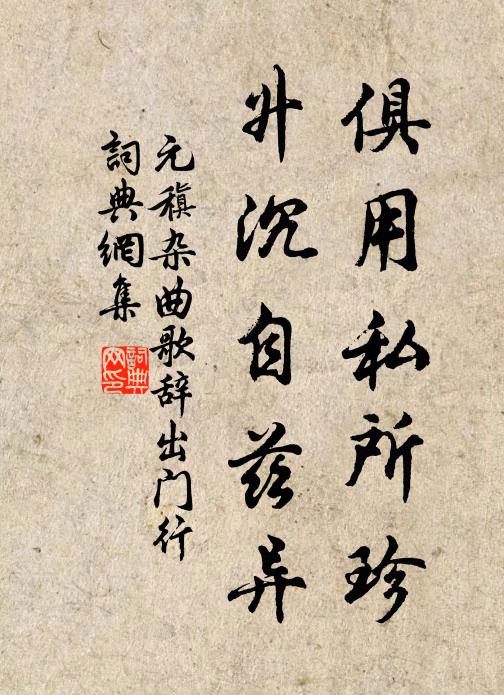 俱用私所珍
升沉自兹异
元稹杂曲歌辞出门行
詞典網集
詞典
网印